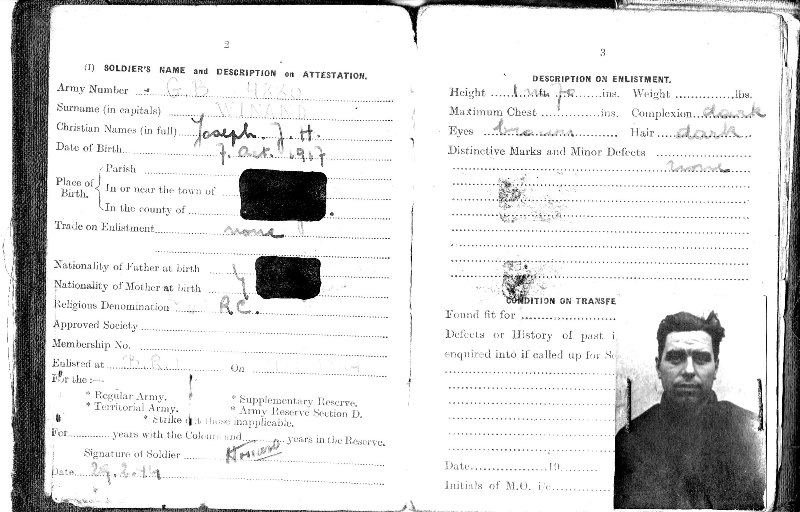 2
(I) SOLDIER'S NAME and DESCRIPTION on ATTESTATION.
Army Number G.B. 4220
Surname (in capitals)
Christian Names (in full) Joseph. J. H.
Date of Birth 7. Oct. 1917
Place of Birth.
Parish
In or near the town of
In the county of
Trade on Enlistment none
Nationality of Father at birth
Nationality of Mother at birth
Religious Denomination R.C.
Approved Society
Membership No.
Enlisted at On
For the :—
* Regular Army. * Supplementary Reserve.
* Territorial Army. * Army Reserve Section D.
* Strike out those inapplicable.
For years with the Colours and years in the Reserve.
Signature of Soldier
Date
3
DESCRIPTION ON ENLISTMENT.
Height ins. Weight lbs.
Maximum Chest ins. Complexion dark
Eyes brown Hair dark
Distinctive Marks and Minor Defects
none
CONDITION ON TRANSFE
Found fit for
Defects or History of past i
enquired into if called up for Se
Date 19
Initials of M.O. i/c